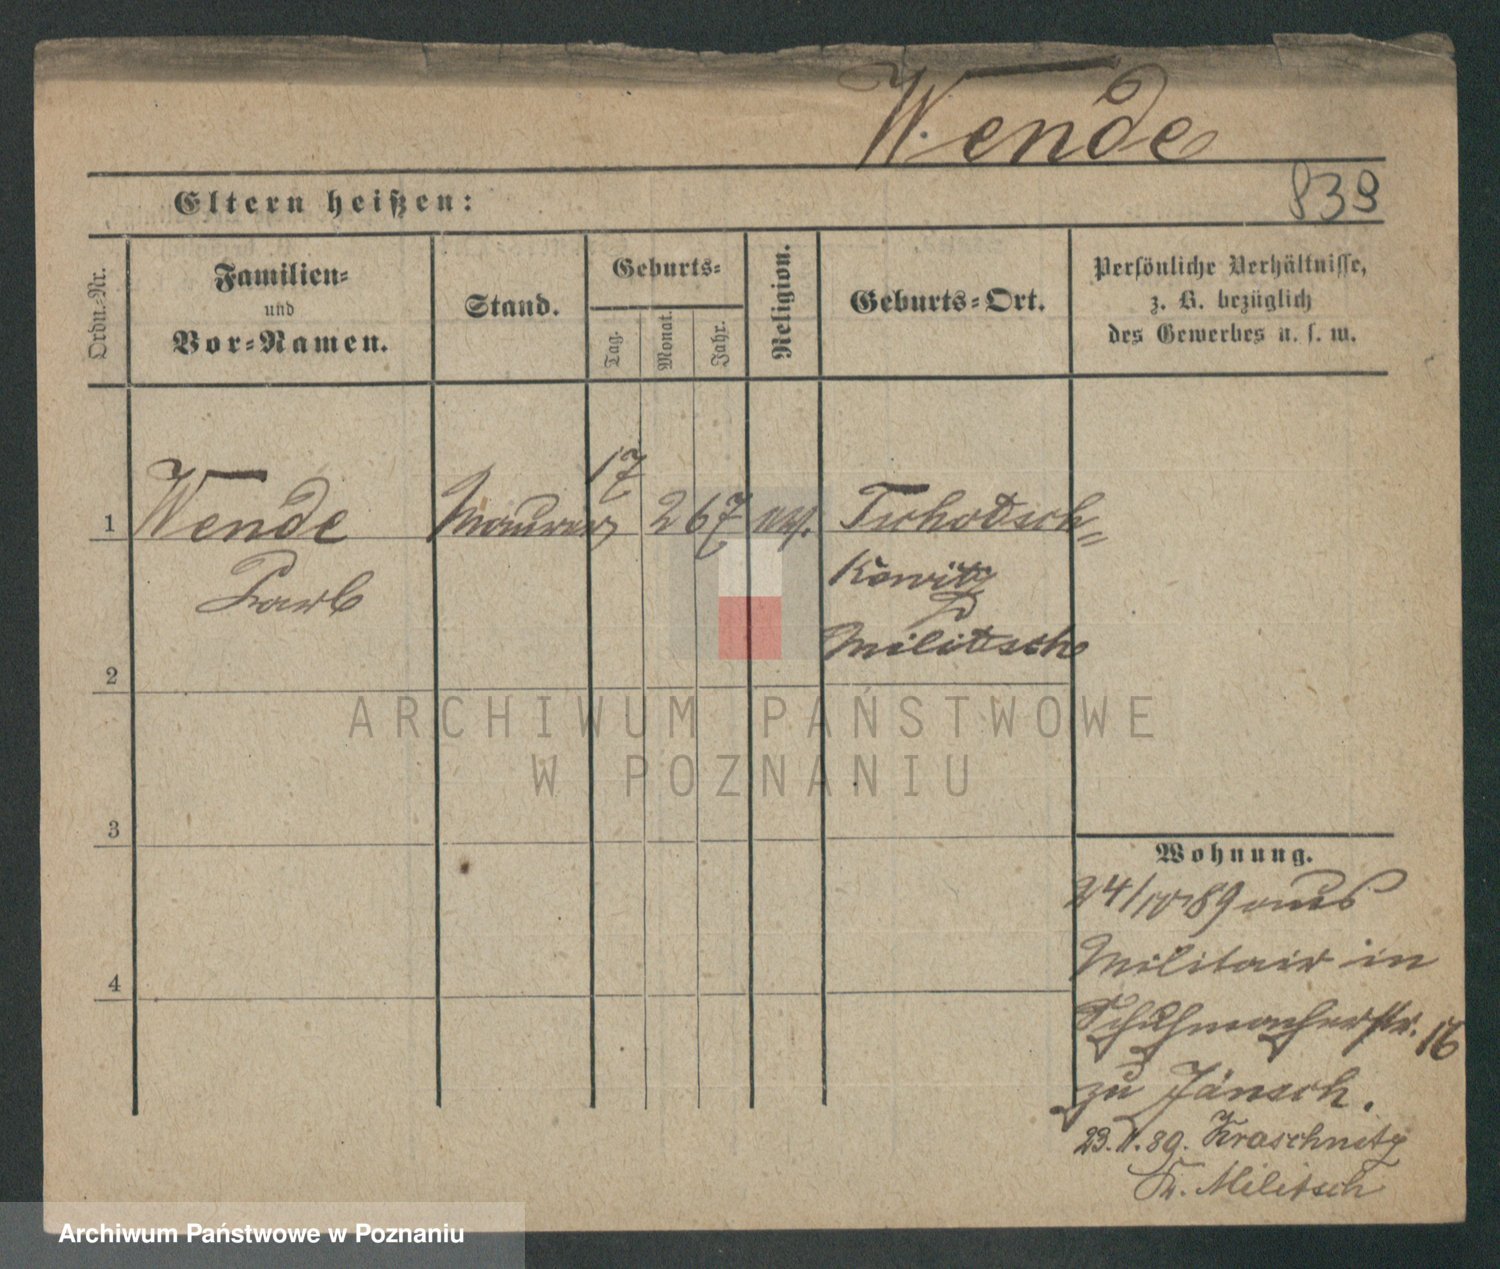 Wende
839
Eltern heißen:
Ordn.-Nr.
Familien-
und
Vor-Namen.
Stand.
Geburts-
Tag.
Monat.
Jahr.
Religion.
Geburts-Ort.
Persönliche Verhältnisse,
z. B. bezüglich
des Gewerbes u. s. w.
1
Wende
Karl
Maurer
17
2
67
ev.
Tschotsch-
kowitz
Militsch
2
3
4
Wohnung.
24/10 89 aus
Militair in
Schuhmacherstr. 16
zu Jänsch.
23. 11. 89. Kraschnitz
Kr. Militsch
ARCHIWUM PAŃSTWOWE
W POZNANIU
Archiwum Państwowe w Poznaniu